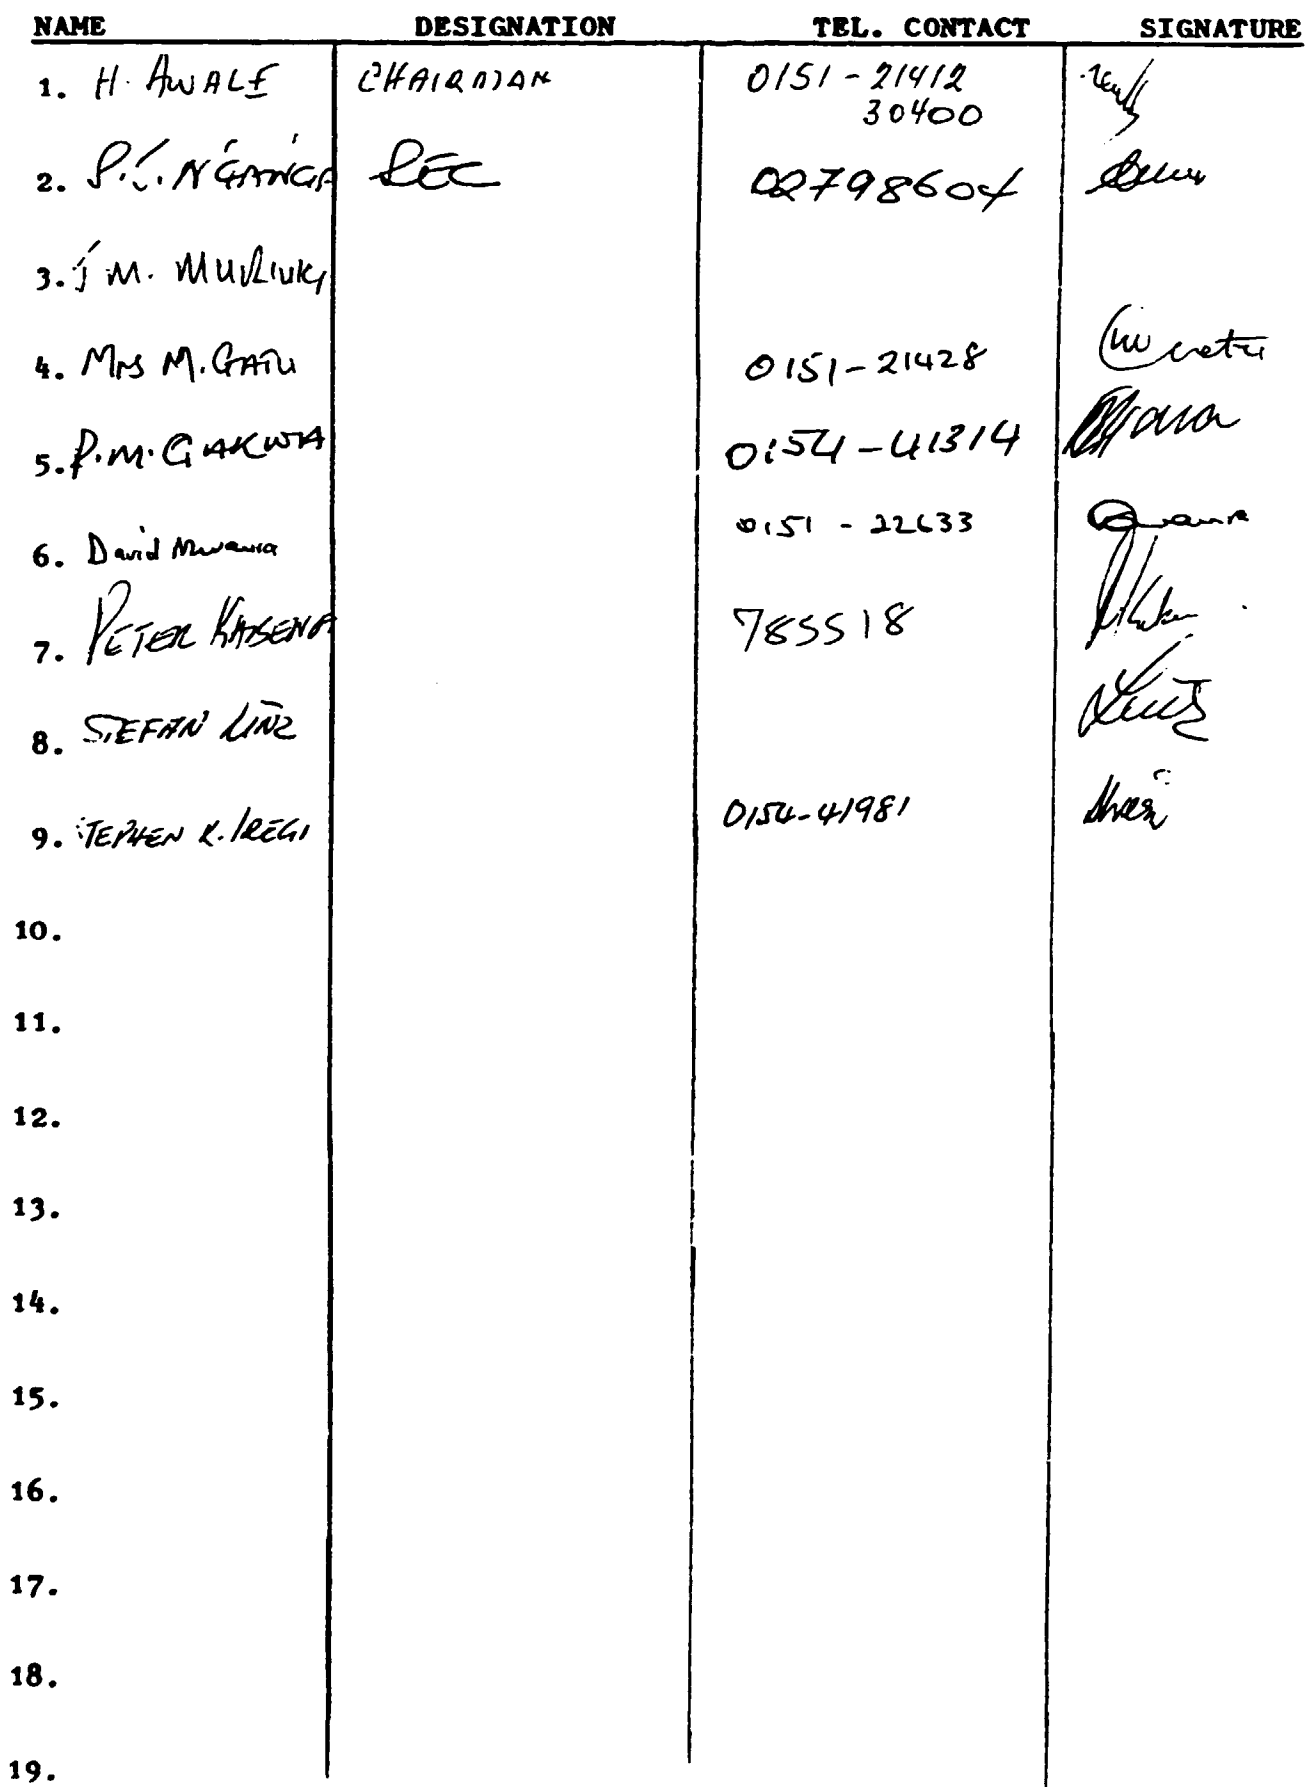 NAME DESIGNATION TEL. CONTACT SIGNATURE
1. H. AWALE CHAIRMAN 0151-21412
30400
2. N'GANG'A SEC 02798604
3. J M. MURIUKI
4. Mrs M. GATU 0151-21428
5. P.M. GAKWA 0154-41314
6. David Mwaura 0151 - 22633
7. PETER 785518
8. STEFAN LINZ
9. STEPHEN K. IREGI 0154-41981
10.
11.
12.
13.
14.
15.
16.
17.
18.
19.